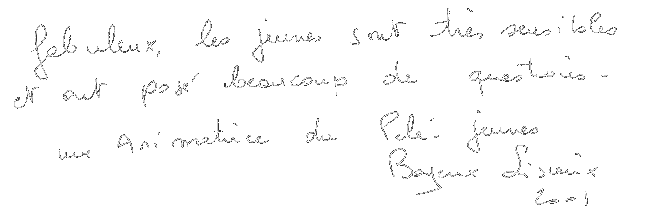 fabuleux, les jeunes sont très sensibles
et ont posé beaucoup de questions.
une Animatrice du Pélé jeunes
Bayeux Lisieux
2001